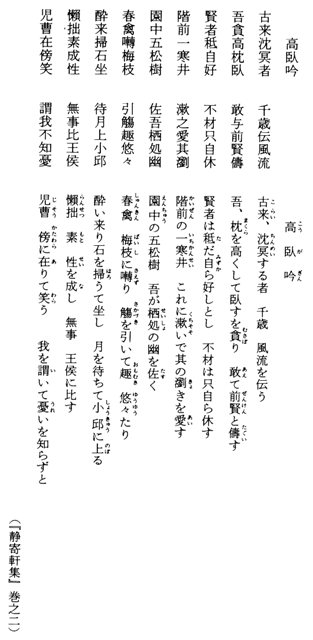 高臥吟
古来沈冥者 千歳伝風流
吾貪高枕臥 敢与前賢儔
賢者秪自好 不材只自休
階前一寒井 漱之愛其瀏
園中五松樹 佐吾栖処幽
春禽囀梅枝 引觴趣悠々
酔来掃石坐 待月上小邱
懶拙素成性 無事比王侯
児曹在傍笑 謂我不知憂
高臥吟
古来、沈冥する者 千歳 風流を伝う
吾、枕を高くして臥すを貪り 敢て前賢と儔す
賢者は秪だ自ら好しとし 不材は只自ら休す
階前の一寒井 これに漱いで其の瀏きを愛す
園中の五松樹 吾が栖処の幽を佐く
春禽 梅枝に囀り 觴を引いて趣 悠々たり
酔い来り石を掃うて坐し 月を待ちて小邱に上る
懶拙 素 性を成し 無事 王侯に比す
児曹 傍に在りて笑う 我を謂いて憂いを知らずと
(『静寄軒集』巻之二)